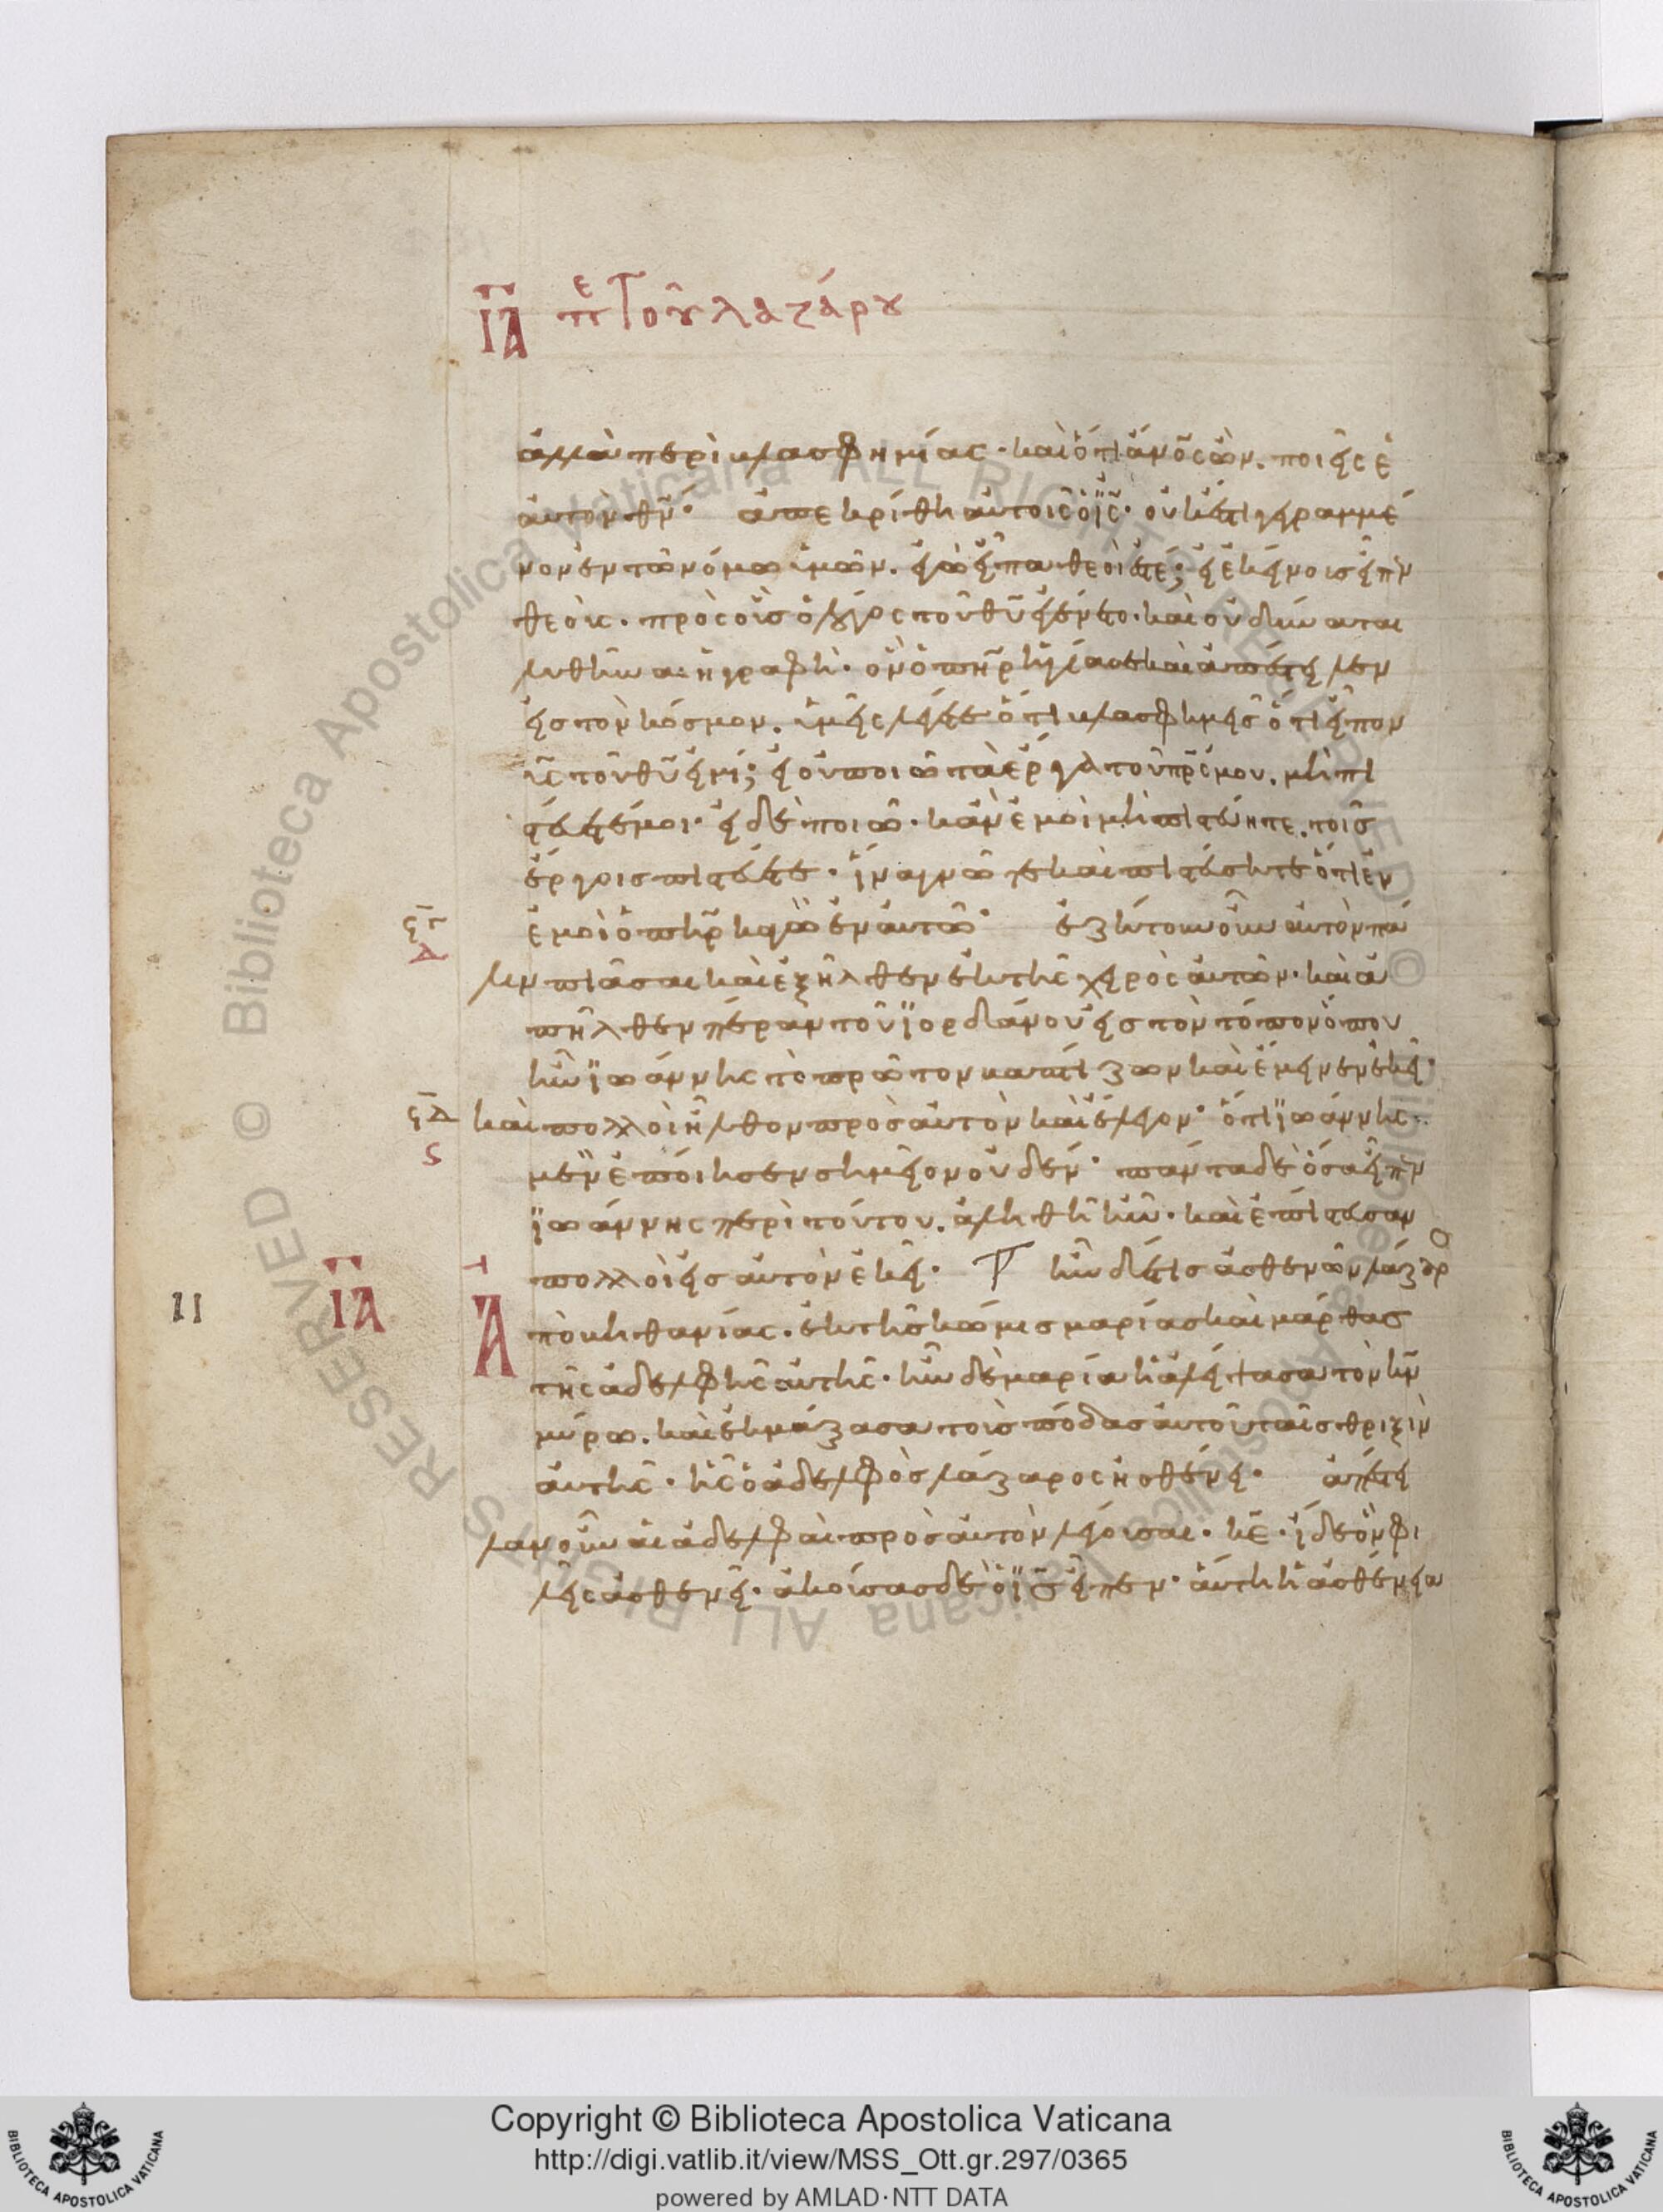 ΙΑ πε τοῦ λαζάρου
ἀλλὰ περὶ βλασφημίας· καὶ ὅτι ἄνος ὢν. ποιεῖς σε
αυτὸν θν· ἀπεκρίθη αὐτοῖς ὁ ις· οὐκ ἔστι γεγραμμέ
νον ἐν τῶ νόμω ὑμῶν. ἐγὼ εἶπα θεοί ἐστέ; εἰ ἐκείνους εἶπεν
θεοὺς. πρὸς οὓς ὁ λόγος τοῦ θυ ἐγένετο. καὶ οὐ δύναται
λυθῆναι ἡ γραφὴ· ὃν ὁ πηρ ἡγίασε καὶ ἀπέστειλεν
εἰς τὸν κόσμον. ὑμεῖς λέγετε ὅτι βλασφημεῖς ὅτι εἶπον
υς τοῦ θυ εἰμί; εἰ οὐ ποιῶ τὰ ἔργα τοῦ πρς μου. μὴ πι
στεύετέ μοι· εἰ δὲ ποιῶ. κἂν ἐμοὶ μὴ πιστεύητε. τοῖς
ἔργοις πιστεύετε· ἵνα γνῶτε καὶ πιστεύσητε ὅτι ἐν
ἐμοὶ ὁ πηρ κἀγὼ ἐν αὐτῶ· ἐζήτουν οὖν αὐτὸν πά
λιν πιάσαι καὶ ἐξῆλθεν ἐκ τῆς χειρὸς αὐτῶν. καὶ ἀ
πῆλθεν πέραν τοῦ ϊορδάνου εἰς τὸν τόπον ὅπου
ἦν ϊωάννης τὸ πρῶτον βαπτίζων καὶ ἔμεινεν ἐκεῖ·
καὶ πολλοὶ ἦλθον πρὸς αὐτὸν καὶ ἔλεγον· ὅτι ϊωάννης
μὲν ἐποίησεν σημεῖον οὐδέν· πάντα δὲ ὅσα εἶπεν
ϊωάννης περὶ τούτου. ἀληθῆ ἦν· καὶ ἐπίστευσαν
πολλοὶ εἰς αὐτὸν ἐκεῖ· ἦν δέ τις ἀσθενῶν λάζαρο
11 ΙΑ Ἀπὸ βηθανίας. ἐκ τῆς κώμης μαρίας καὶ μάρθας
τῆς ἀδελφῆς αὐτῆς· ἦν δὲ μαρία ἡ ἀλείψασα τὸν κν
μύρω. καὶ ἐκμάξασα τοὺς πόδας αὐτοῦ ταῖς θριξὶν
αὐτῆς· ἧς ὁ ἀδελφὸς λάζαρος ἠσθένει· ἀπέστει
λαν οὖν αἱ ἀδελφαὶ πρὸς αὐτὸν λέγουσαι. κε. ἴδε ὃν φι
λεῖς ἀσθενεῖ. ἀκούσας δὲ ὁ ις εἶπεν· αὕτη ἡ ἀσθένεια
Copyright © Biblioteca Apostolica Vaticana
http://digi.vatlib.it/view/MSS_Ott.gr.297/0365
powered by AMLAD·NTT DATA
BIBLIOTECA APOSTOLICA VATICANA
BIBLIOTECA APOSTOLICA VATICANA
© Biblioteca Apostolica Vaticana ALL RIGHTS RESERVED